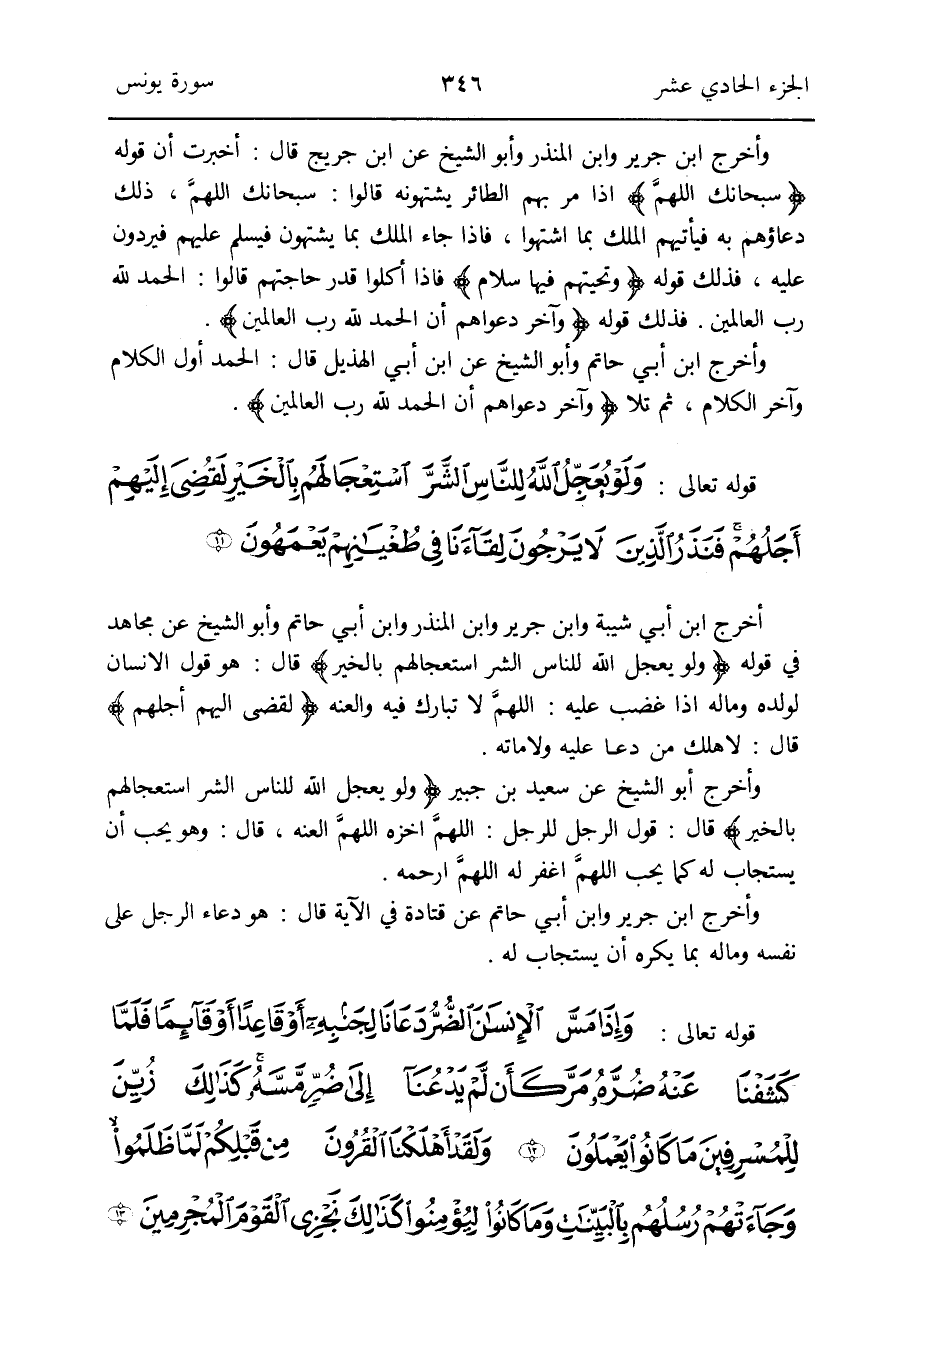 الجزء الحادي عشر ٣٤٦ سورة يونس
وأخرج ابن جرير وابن المنذر وأبو الشيخ عن ابن جريج قال : أخبرت أن قوله
﴿ سبحانك اللهمَّ ﴾ اذا مر بهم الطائر يشتهونه قالوا : سبحانك اللهمَّ ، ذلك
دعاؤهم به فيأتيهم الملك بما اشتهوا ، فاذا جاء الملك بما يشتهون فيسلم عليهم فيردون
عليه ، فذلك قوله ﴿ وتحيتهم فيها سلام ﴾ فاذا أكلوا قدر حاجتهم قالوا : الحمد لله
رب العالمين . فذلك قوله ﴿ وآخر دعواهم أن الحمد لله رب العالمين ﴾ .
وأخرج ابن أبي حاتم وأبو الشيخ عن ابن أبي الهذيل قال : الحمد أول الكلام
وآخر الكلام ، ثم تلا ﴿ وآخر دعواهم أن الحمد لله رب العالمين ﴾ .
قوله تعالى : وَلَوْ يُعَجِّلُ ٱللَّهُ لِلنَّاسِ ٱلشَّرَّ ٱسْتِعْجَالَهُم بِٱلْخَيْرِ لَقُضِىَ إِلَيْهِمْ
أَجَلُهُمْ ۖ فَنَذَرُ ٱلَّذِينَ لَا يَرْجُونَ لِقَآءَنَا فِى طُغْيَـٰنِهِمْ يَعْمَهُونَ ۝١١
أخرج ابن أبي شيبة وابن جرير وابن المنذر وابن أبي حاتم وأبو الشيخ عن مجاهد
في قوله ﴿ ولو يعجل الله للناس الشر استعجالهم بالخير ﴾ قال : هو قول الانسان
لولده وماله اذا غضب عليه : اللهمَّ لا تبارك فيه والعنه ﴿ لقضى اليهم أجلهم ﴾
قال : لاهلك من دعا عليه ولاماته .
وأخرج أبو الشيخ عن سعيد بن جبير ﴿ ولو يعجل الله للناس الشر استعجالهم
بالخير ﴾ قال : قول الرجل للرجل : اللهمَّ اخزه اللهمَّ العنه ، قال : وهو يحب أن
يستجاب له كما يحب اللهمَّ اغفر له اللهمَّ ارحمه .
وأخرج ابن جرير وابن أبي حاتم عن قتادة في الآية قال : هو دعاء الرجل على
نفسه وماله بما يكره أن يستجاب له .
قوله تعالى : وَإِذَا مَسَّ ٱلْإِنسَـٰنَ ٱلضُّرُّ دَعَانَا لِجَنۢبِهِۦٓ أَوْ قَاعِدًا أَوْ قَآئِمًا فَلَمَّا
كَشَفْنَا عَنْهُ ضُرَّهُۥ مَرَّ كَأَن لَّمْ يَدْعُنَآ إِلَىٰ ضُرٍّ مَّسَّهُۥ ۚ كَذَٰلِكَ زُيِّنَ
لِلْمُسْرِفِينَ مَا كَانُوا۟ يَعْمَلُونَ ۝١٢ وَلَقَدْ أَهْلَكْنَا ٱلْقُرُونَ مِن قَبْلِكُمْ لَمَّا ظَلَمُوا۟ ۙ
وَجَآءَتْهُمْ رُسُلُهُم بِٱلْبَيِّنَـٰتِ وَمَا كَانُوا۟ لِيُؤْمِنُوا۟ ۚ كَذَٰلِكَ نَجْزِى ٱلْقَوْمَ ٱلْمُجْرِمِينَ ۝١٣